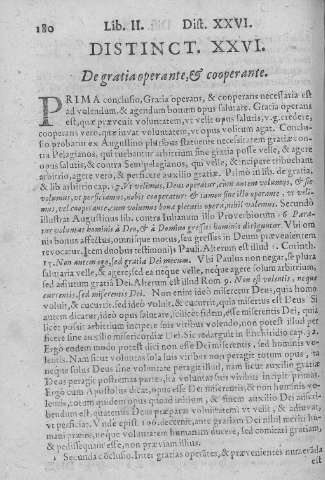 180 Lib. II. Dist. XXVI.
DISTINCT. XXVI.
De gratia operante, & cooperante.
PRIMA conclusio, Gratia operans, & cooperans necessaria est
ad volendum, & agendum bonum opus salutare. Gratia operans
est, quæ prævenit voluntatem, vt velit opus salutis, v.g. credere,
cooperans vero, quæ iuvat voluntatem, vt opus volitum agat. Conclu-
sio probatur ex Augustino pluribus statuente necessitatem gratiæ con-
tra Pelagianos, qui putabant arbitrium sine gratia posse velle, & agere
opera salutis, & contra Semipelagianos, qui velle, & incipere tribuebant
arbitrio, agere vero, & perficere auxilio gratiæ. Primo in lib. de gratia,
& lib arbitrio cap. 17. Vt vellemus, Deus operatur, cum autem volumus, & sic
volumus, vt perficiamus, nobis cooperatur: & tamen sine illo operante vt veli-
mus, vel cooperante, cum volumus bona pietatis opera, nihil valemus. Secundò
illustrat Augustinus lib. contra Iulianum illud Proverbiorum 16. Para-
tur voluntas hominis à Deo, & à Domino gressus hominis diriguntur. Vbi om
nis bonus affectus, omnisque motus, seu gressus in Deum prævenientem
revocatur. Item duobus testimonijs Pauli. Alterum est illud 1. Corinth.
15. Non autem ego, sed gratia Dei mecum. Vbi Paulus non negat, se plura
salutaria velle, & agere, sed ea neque velle, neque agere solum arbitrium,
sed adiutum gratia Dei. Alterum est illud Rom 9. Non est volentis, neque
currentis, sed miserentis Dei. Non enim ideò miseretur Deus, quia homo
voluit, & cucurrit, sed ideò voluit, & cucurrit, quia misertus est Deus Si
autem dicatur, ideò opus salutare, scilicet fidem, esse miserentis Dei, quia
licet possit arbitrium incipere suis viribus volendo, non potest illud per
ficere sine auxilio misericordiæ Dei. Sic redarguit in Enchiridio cap. 32.
Ergò eadem modo potest dici non esse Dei miserentis, sed hominis vo-
lentis. Nam sicut voluntas sola suis viribus non peragit totum opus, ita
neque solus Deus sine voluntate peragit illud, nam sicut auxilio gratiæ
Deus peragit postremas partes, ita voluntas suis viribus incipit primas.
Ergò cum Apostolus dicat, opus esse Dei miserentis, & non hominis vo-
lentis, totum quidem opus quoad initium, & finem auxilio Dei adscri-
bendum est, quatenus Deus præparat voluntatem vt velit, & adiuvat,
vt perficiat. Vnde epist. 106. decernit, ante gratiam Dei nihil meriti hu-
mani præire, neque voluntatem humanam ducere, sed comitari gratiam,
& pedissequam esse, non præviam illius.
Secunda cõclusio. Inter gratias operãtes, & prævenientes numerãda
est